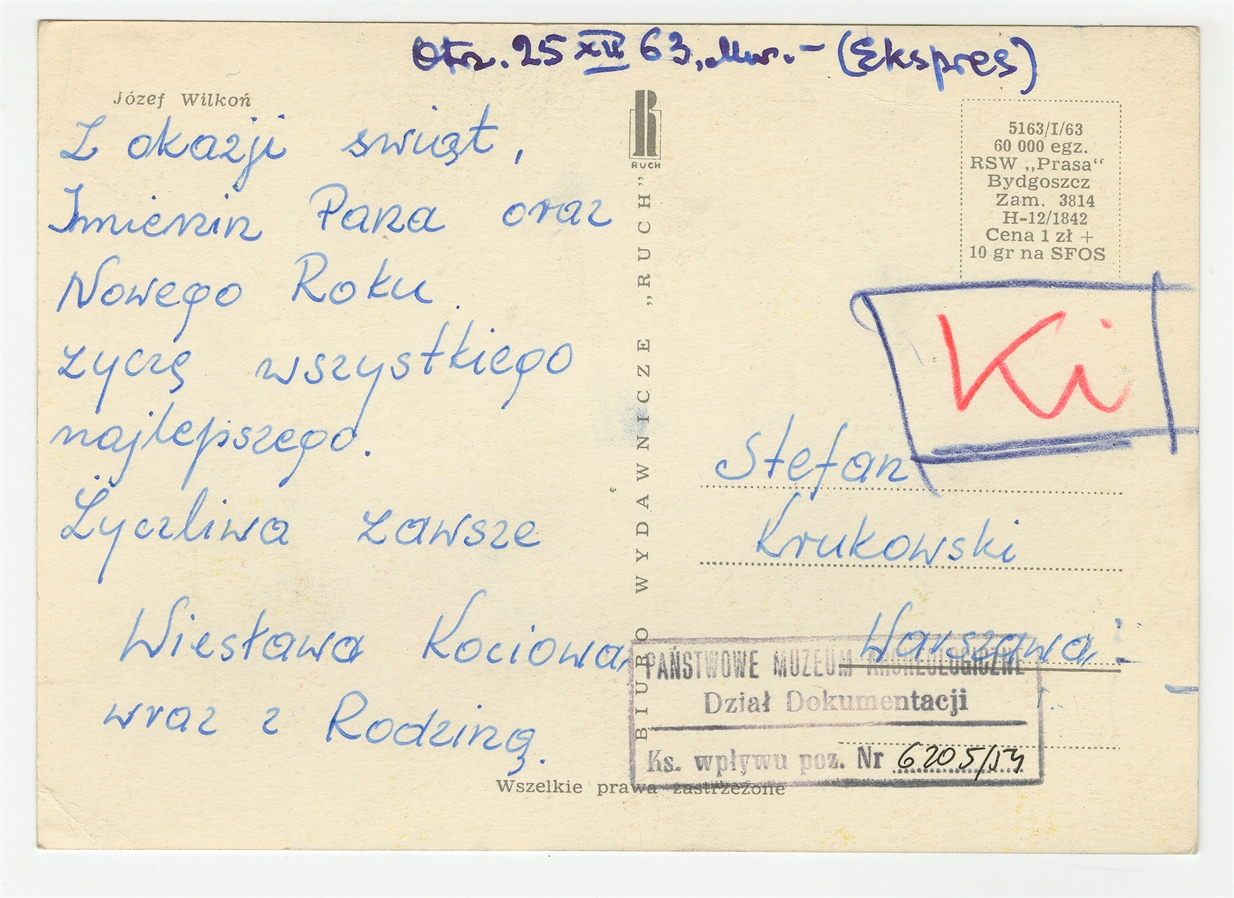 Otrz. 25 XII 63, Mw. - (Ekspres)
Józef Wilkoń
Z okazji swiąt,
Imienin Pana oraz
Nowego Roku
życzę wszystkiego
najlepszego.
Życzliwa zawsze
Wiesława Kociowa
wraz z Rodziną.
RUCH
BIURO WYDAWNICZE „RUCH”
5163/I/63
60 000 egz.
RSW „Prasa“
Bydgoszcz
Zam. 3814
H-12/1842
Cena 1 zł +
10 gr na SFOS
Ki
Stefan
Krukowski
Warszawa
PAŃSTWOWE MUZEUM ARCHEOLOGICZNE
Dział Dokumentacji
Ks. wpływu poz. Nr 6205/154
Wszelkie prawa zastrzeżone